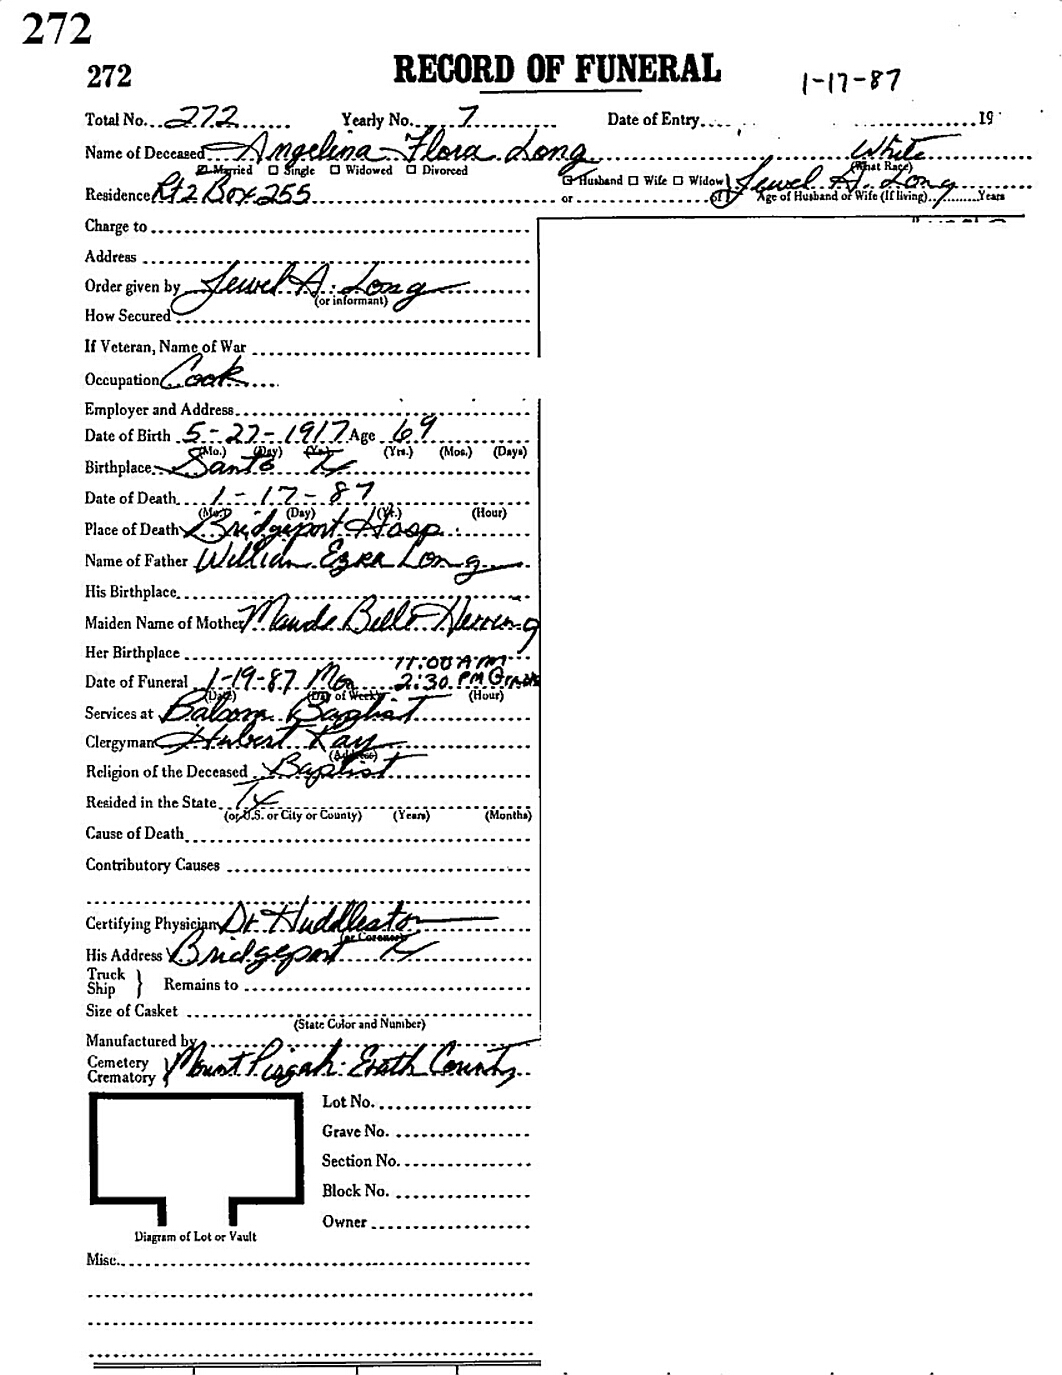 272
272 RECORD OF FUNERAL 1-17-87
Total No. 272 Yearly No. 7 Date of Entry 19
Name of Deceased Angelina Flora Long White
Married Single Widowed Divorced Husband Wife Widow Jewel A. Long (What Race)
Residence Rt 2 Box 255 or of Age of Husband or Wife (If living) Years
Charge to
Address
Order given by Jewel A. Long
(or informant)
How Secured
If Veteran, Name of War
Occupation Cook
Employer and Address
Date of Birth 5-27-1917 Age 69
(Mo.) (Day) (Yr.) (Yrs.) (Mos.) (Days)
Birthplace Santo Tx
Date of Death 1-17-87
(Mo.) (Day) (Yr.) (Hour)
Place of Death Bridgeport Hosp.
Name of Father William Ezra Long
His Birthplace
Maiden Name of Mother Maude Belle Herring
Her Birthplace
11:00 AM
Date of Funeral 1-19-87 Mon 2:30 PM Grave
(Date) (Day of Week) (Hour)
Services at Balsora Baptist
Clergyman Hubert Ray
(Address)
Religion of the Deceased Baptist
Resided in the State Tx
(or U.S. or City or County) (Years) (Months)
Cause of Death
Contributory Causes
Certifying Physician Dr Huddleston
(or Coroner)
His Address Bridgeport Tx
Truck
Ship } Remains to
Size of Casket
(State Color and Number)
Manufactured by
Cemetery
Crematory } Mount Pisgah - Erath County
Lot No.
Grave No.
Section No.
Block No.
Owner
Diagram of Lot or Vault
Misc.